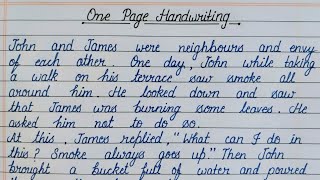 One Page Handwriting
John and James were neighbours and envy
of each other. One day, John while taking
a walk on his terrace saw smoke all
around him. He looked down and saw
that James was burning some leaves. He
asked him not to do so.
At this, James replied, "What can I do in
this? Smoke always goes up." Then John
brought a bucket full of water and poured